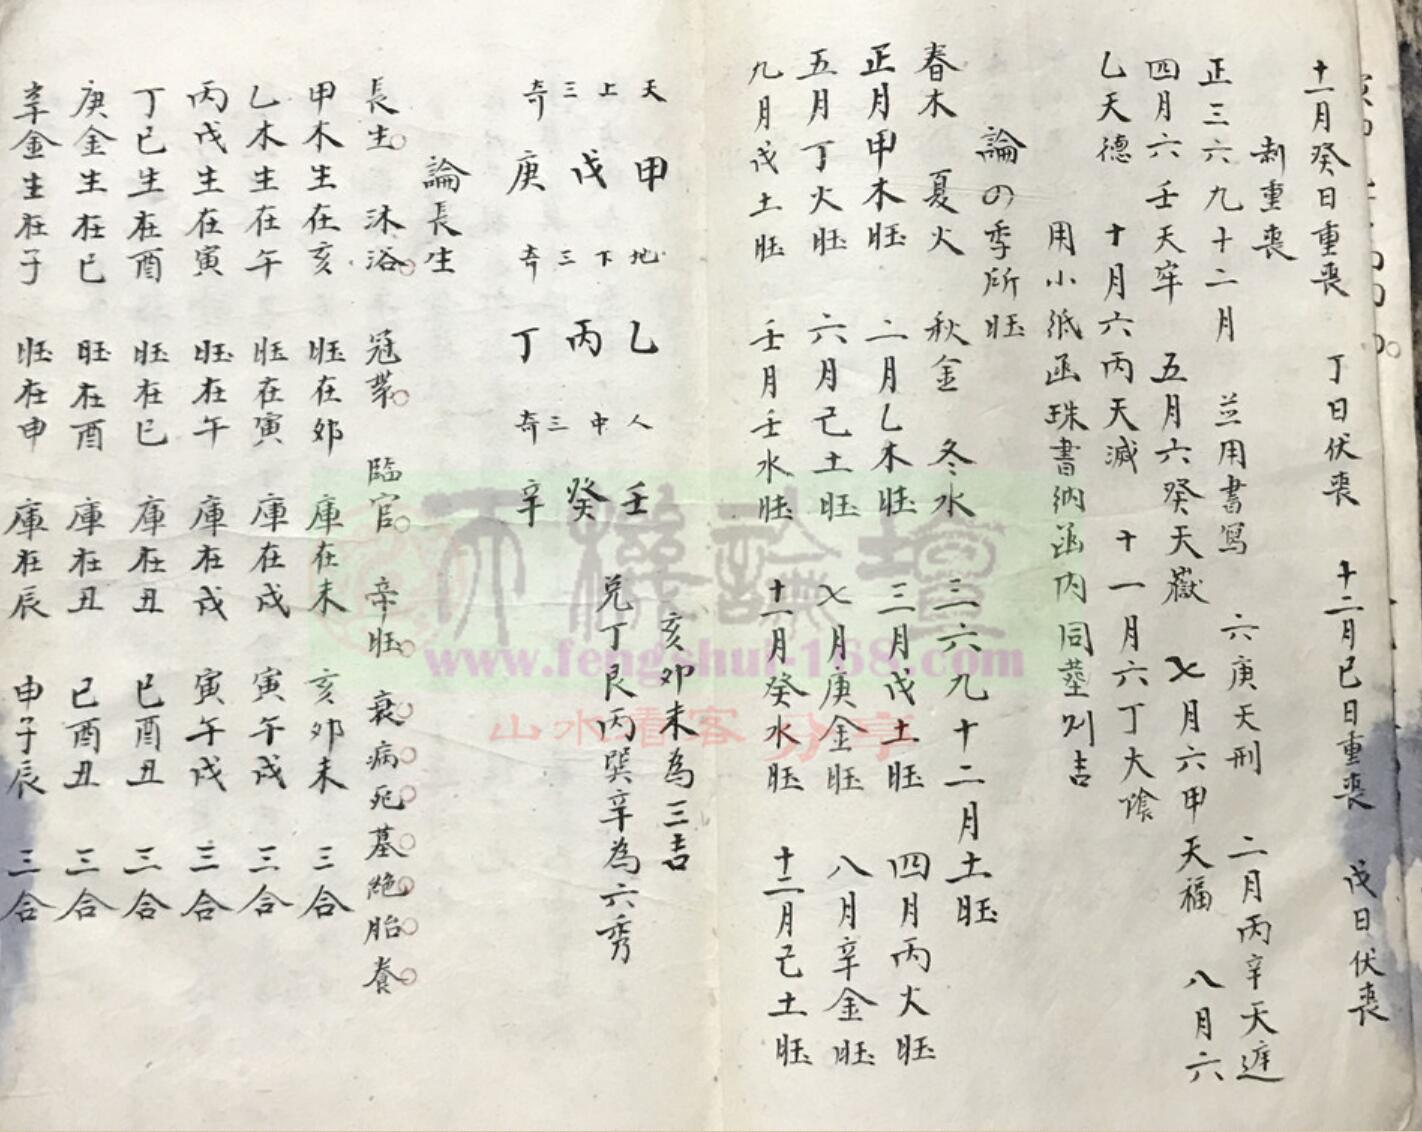 十一月癸日重喪 丁日伏喪 十二月己日重喪 戊日伏喪
制重喪
正三六九十二月 並用書寫 六庚天刑 二月丙辛天遅
四月六壬天牢 五月六癸天嶽 七月六甲天福 八月六
乙天德 十月六丙天減 十一月六丁大陰
用小紙函珠書納函内同塟則吉
論の季所旺
春木 夏火 秋金 冬水 三六九十二月土旺
正月甲木旺 二月乙木旺 三月戊土旺 四月丙火旺
五月丁火旺 六月己土旺 七月庚金旺 八月辛金旺
九月戊土旺 壬月壬水旺 十一月癸水旺 十二月己土旺
天上三奇 地下三奇 人中三奇
甲戊庚 乙丙丁 壬癸辛
亥卯未為三吉
兌丁艮丙巽辛為六秀
論長生
長生 沐浴 冠帶 臨官 帝旺 衰病死墓絶胎養
甲木生在亥 旺在卯 庫在未 亥卯未 三合
乙木生在午 旺在寅 庫在戌 寅午戌 三合
丙戊生在寅 旺在午 庫在戌 寅午戌 三合
丁己生在酉 旺在巳 庫在丑 巳酉丑 三合
庚金生在巳 旺在酉 庫在丑 巳酉丑 三合
辛金生在子 旺在申 庫在辰 申子辰 三合
天機論壇
www.fengshui-168.com
山水看客 分享